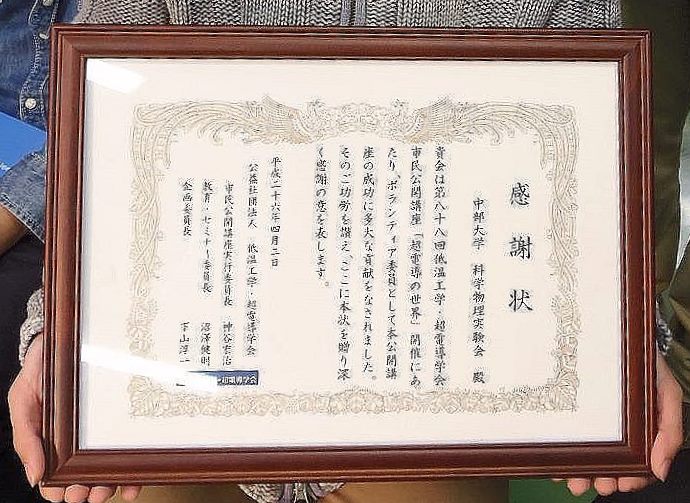 感謝状
中部大学 科学物理実験会 殿
貴会は第八十八回低温工学・超電導学会
市民公開講座「超電導の世界」開催にあ
たり、ボランティア委員として本公開講
座の成功に多大な貢献をなされました。
そのご功労を讃え、ここに本状を贈り深
く感謝の意を表します。
平成二十六年四月二日
公益社団法人 低温工学・超電導学会
市民公開講座実行委員長 神谷宏治
教育・セミナー委員長 沼澤健則
企画委員長 下山淳一
超電導学会